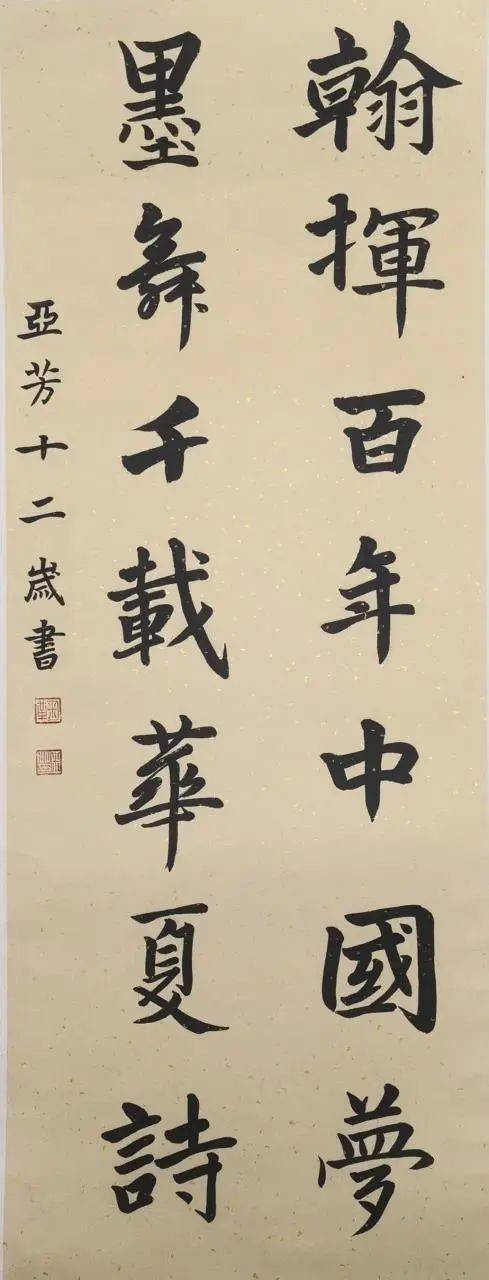 翰揮百年中國夢
墨舞千載華夏詩
亞芳十二歲書